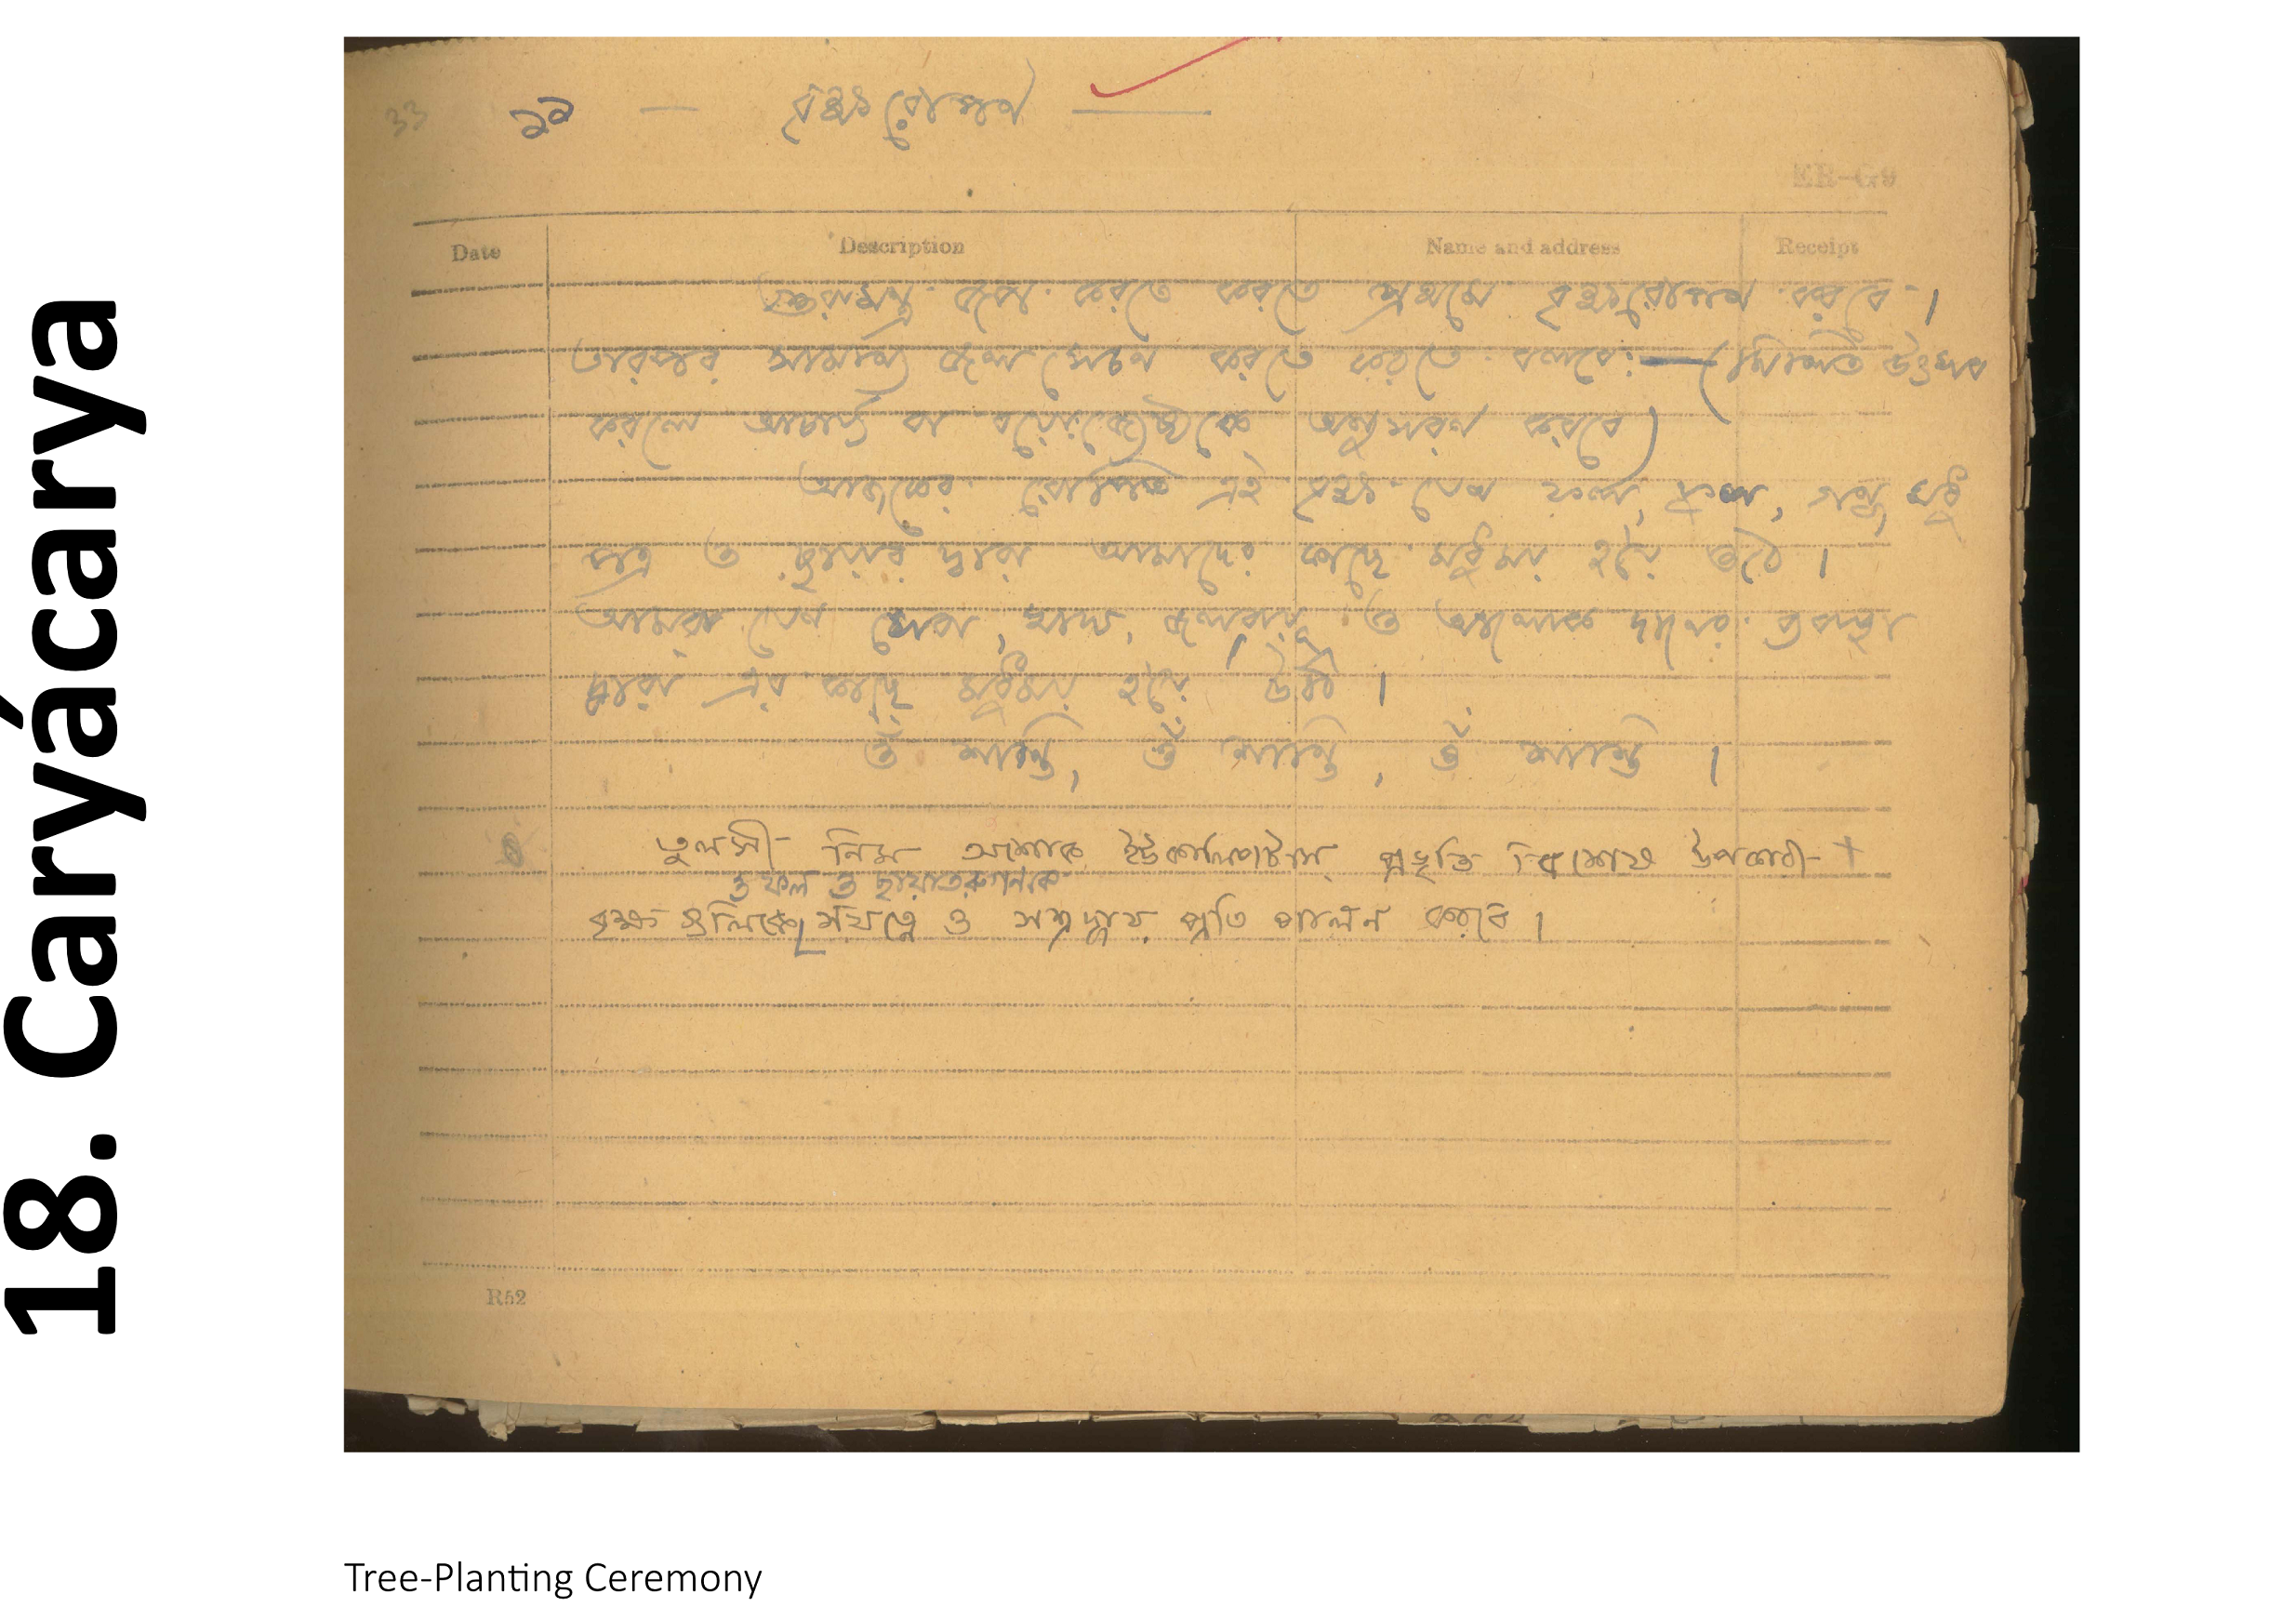 18. Caryácarya
33 ১৯ — বৃক্ষরোপণ —
ER-G9
Date Description Name and address Receipt
গুরুমন্ত্র জপ করতে করতে প্রথমে বৃক্ষরোপণ করবে।
তারপর সামান্য জল সেচন করতে করতে বলবে:—(মিলিত উৎসব
করলে আচার্য্য বা বয়োজ্যেষ্ঠকে অনুসরণ করবে)
আজকের রোপিত এই বৃক্ষ যেন ফল, ফুল, গন্ধ মধু
পত্র ও ছায়ার দ্বারা আমাদের কাছে মধুময় হয়ে ওঠে।
আমরা যেন সেবা, খাদ্য, জলবায়ু ও আলোক দানের ব্যবস্থা
দ্বারা এর কাছে মধুময় হয়ে উঠি।
ওঁ শান্তি, ওঁ শান্তি, ওঁ শান্তি।
তুলসী নিম অশোক ইউকালিপটাস্ প্রভৃতি বিশেষ উপকারী
ও ফল ও ছায়াতরুগণকে
বৃক্ষ গুলিকে সযত্নে ও সশ্রদ্ধায় প্রতি পালন করবে।
R52
Tree-Planting Ceremony